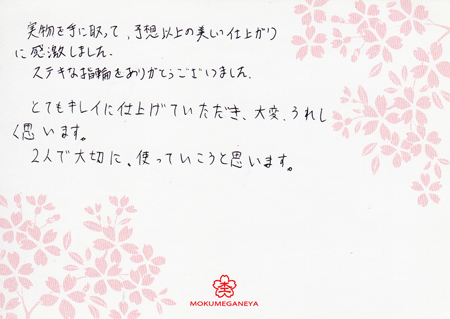 実物を手に取って、予想以上の美しい仕上がり
に感激しました。
ステキな指輪をありがとうございました。
とてもキレイに仕上げていただき、大変、うれし
く思います。
2人で大切に、使っていこうと思います。
杢
MOKUMEGANEYA